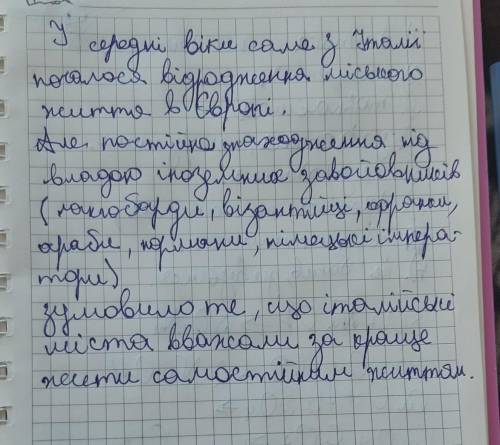 У
середні віки саме з Італії
почалося відродження міського
життя в Європі.
Але постійне знаходження під
владою іноземних завойовників
(лангобарди, візантійці, франки,
араби, нормани, німецькі імпера-
тори)
зумовило те, що італійські
міста вважали за краще
жити самостійним життям.